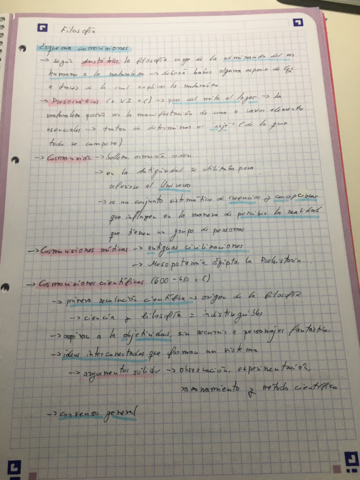 Filosofía
Esquema cosmovisiones
→ Según Aristóteles la filosofía surge de la admiración del ser
humano a la naturaleza → debería haber alguna especie de
a través de la cual explicar la naturaleza
→ Presocráticos (s VI a.C) → paso del mito al logos → la
naturaleza queda en la manifestación de uno o varios elementos
esenciales → tratan de determinar el arjé (de lo que
todo se compone)
→ Cosmovisión →
→ en la antigüedad se utilizaba para
referirse al Universo
→ es un conjunto sistemático de creencias y concepciones
que influyen en la manera de percibir la realidad
que tienen un grupo de personas
→ Cosmovisiones míticas → antiguas civilizaciones
→ Mesopotamia Egipto la Prehistoria
→ Cosmovisiones científicas (600 - a.C)
→ primera revolución científica → origen de la filosofía
→ ciencia y filosofía = indistinguibles
→ aspiran a la objetividad, sin recurrir a personajes fantásticos
→ ideas interconectadas que forman un sistema
→ argumentos sólidos → observación, experimentación
razonamiento y método científico
→ consenso general